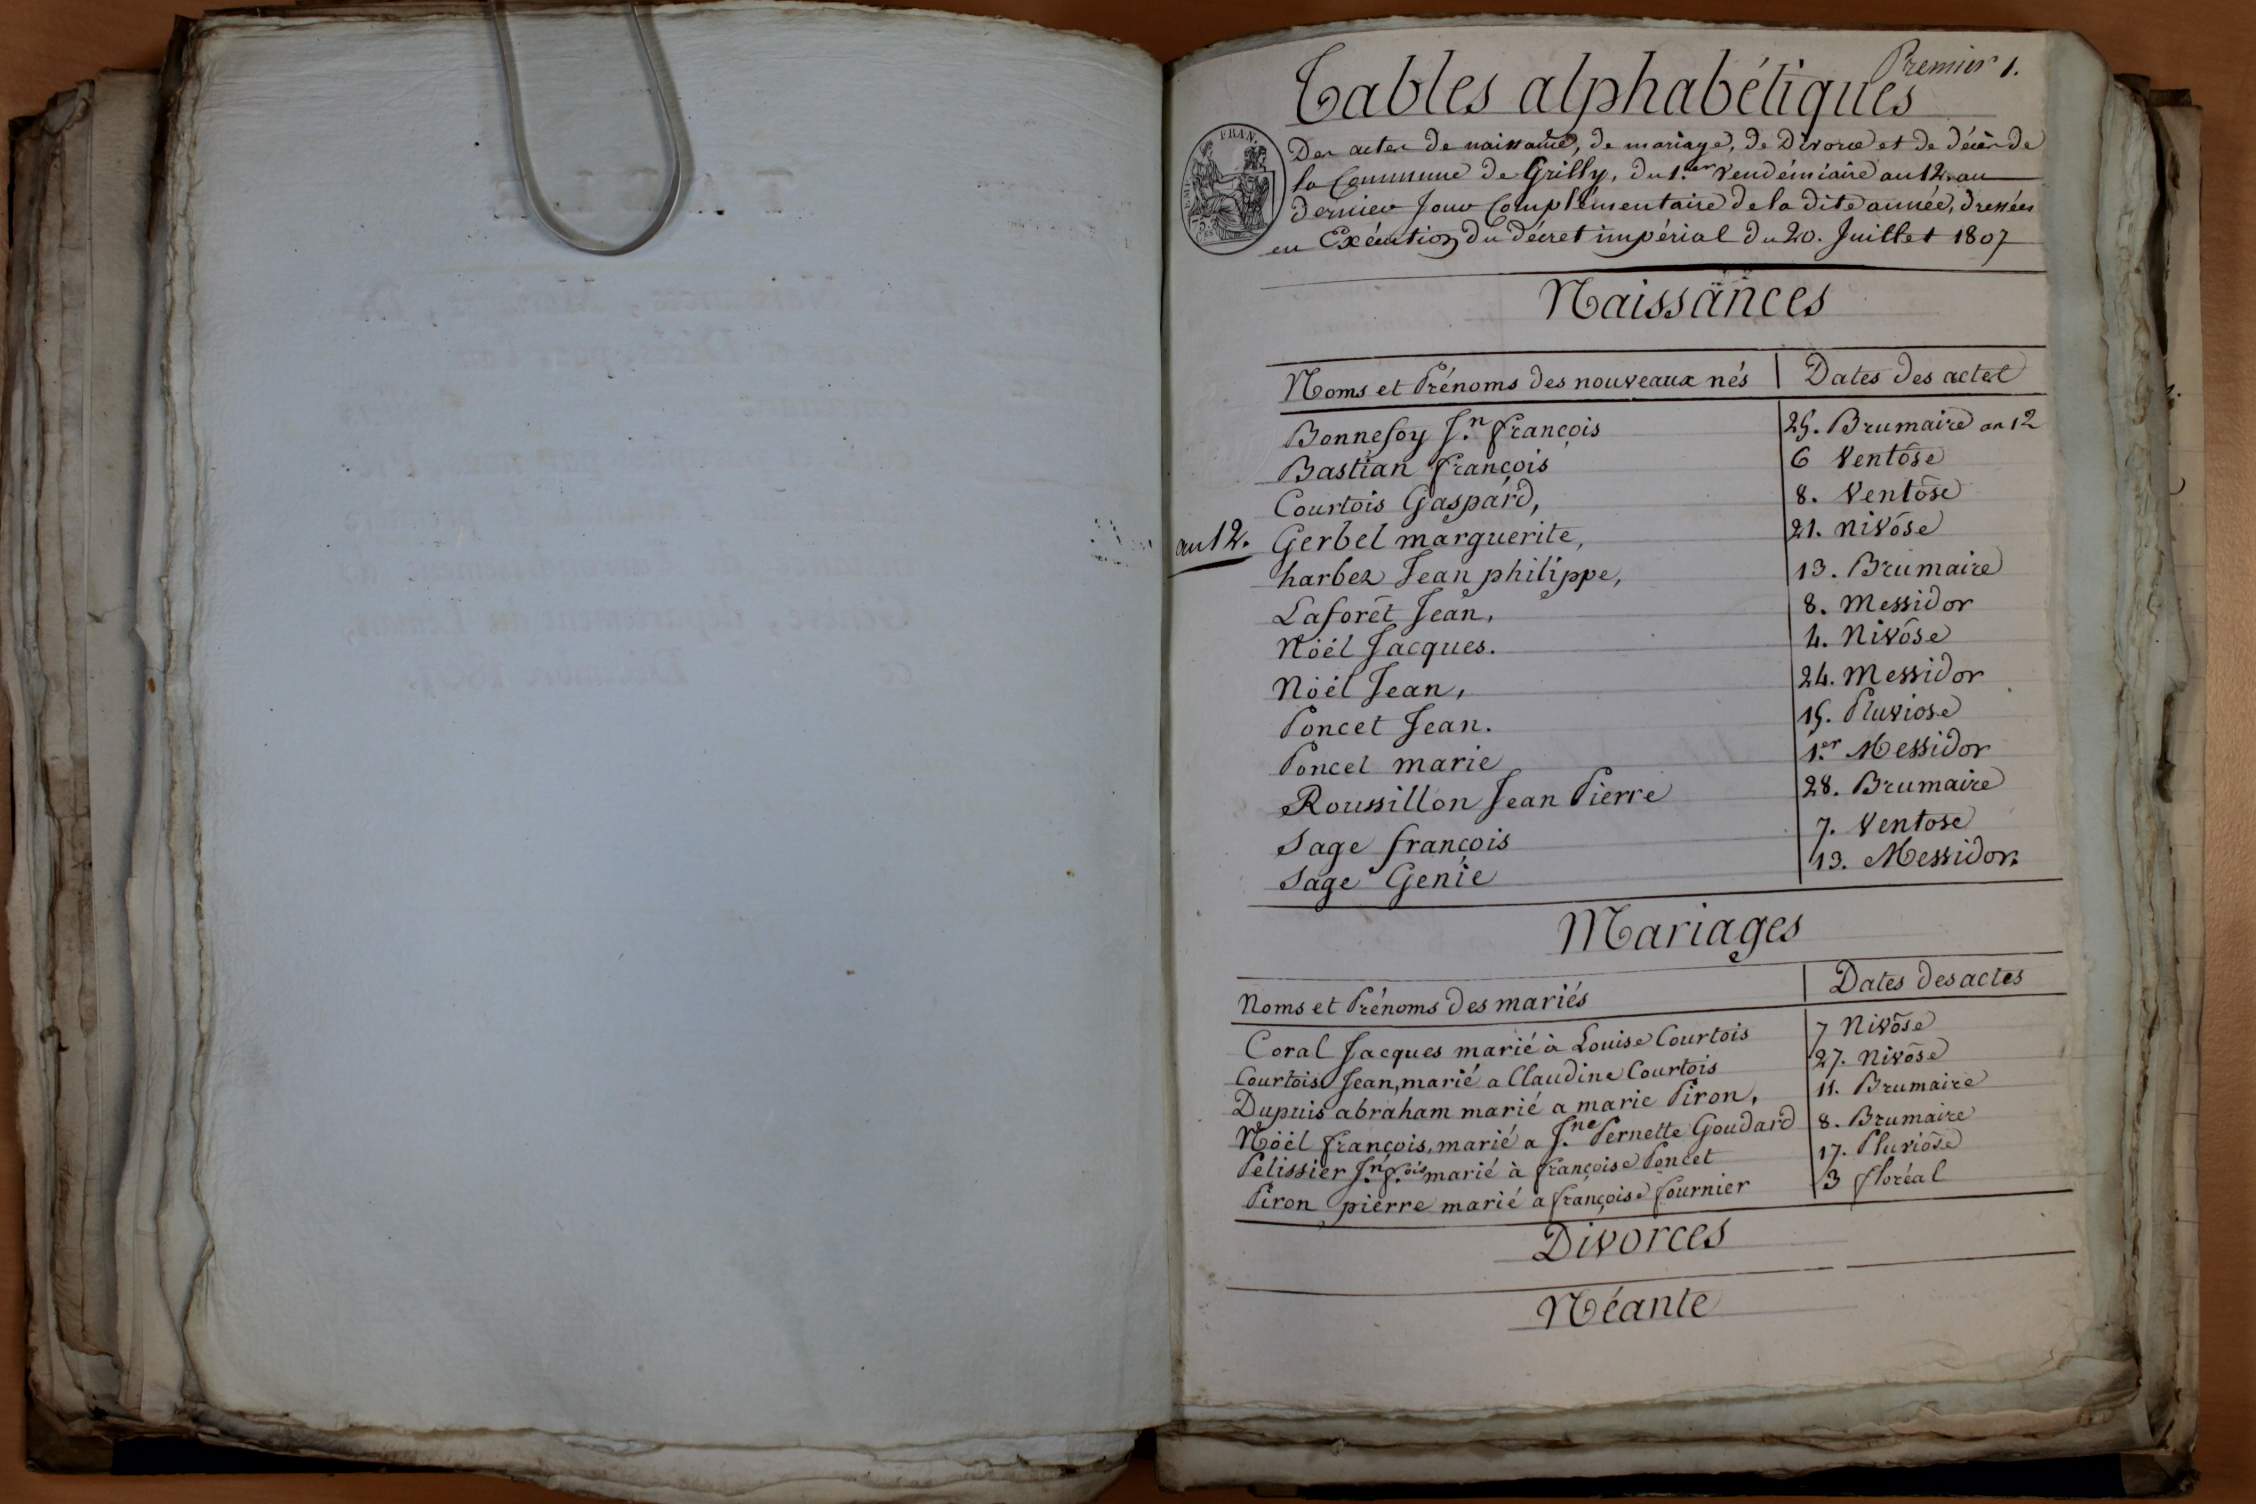 Premier 1.
Tables alphabétiques
Des actes de naissance, de mariage, de Divorce et de décès de
la Commune de Grilly, du 1.er Vendémiaire an 12. au
dernier Jour Complémentaire de la dite année, dressées
en Exécution du décret impérial du 20. Juillet 1807
Naissances
Noms et Prénoms des nouveaux nés | Dates des actes
Bonnefoy J.n françois 25. Brumaire an 12
Bastian françois 6 Ventôse
Courtois Gaspard, 8. Ventôse
an 12. Gerbel marguerite, 21. nivôse
harbez Jean philippe, 13. Brumaire
Laforêt Jean, 8. Messidor
Nöél Jacques. 4. Nivôse
Nöél Jean, 24. Messidor
Poncet Jean. 15. Pluviose
Poncet marie 1.er Messidor
Roussillon Jean Pierre 28. Brumaire
Sage françois 7. Ventose
Sage Genie 13. Messidor.
Mariages
Noms et Prénoms des mariés | Dates des actes
Coral Jacques marié à Louise Courtois 7 Nivôse
Courtois Jean, marié a Claudine Courtois 27. nivôse
Dupuis abraham marié a marie Piron, 11. Brumaire
Nöël françois, marié a J.ne Pernette Goudard 8. Brumaire
Pelissier J.n f.ois marié à françoise Poncet 17. Pluviôse
Piron pierre marié a françoise fournier 3 floréal
Divorces
Néante